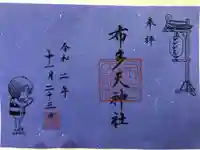 奉拝
布多天神社
令和二年
十一月二十三日